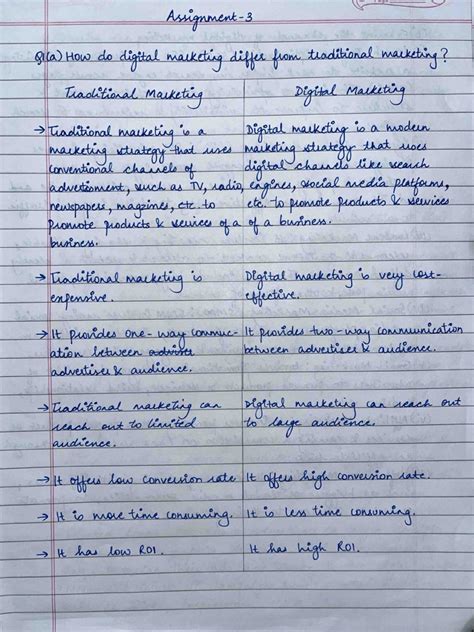 Assignment-3
Q1(a) How do digital marketing differ from traditional marketing?
Traditional Marketing
Digital Marketing
→ Traditional marketing is a
marketing strategy that uses
conventional channels of
advertisment, such as TV, radio,
newspapers, magzines, etc. to
promote products & services of a
business.
Digital marketing is a modern
marketing strategy that uses
digital channels like search
engines, social media platforms,
etc. to promote products & services
of a business.
→ Traditional marketing is
expensive.
Digital marketing is very cost-
effective.
→ It provides one-way commuc-
ation between
advertiser & audience.
It provides two-way communication
between advertiser & audience.
→ Traditional marketing can
reach out to limited
audience.
Digital marketing can reach out
to large audience.
→ It offers low conversion rate
It offers high conversion rate.
→ It is more time consuming.
It is less time consuming.
→ It has low ROI.
It has high ROI.